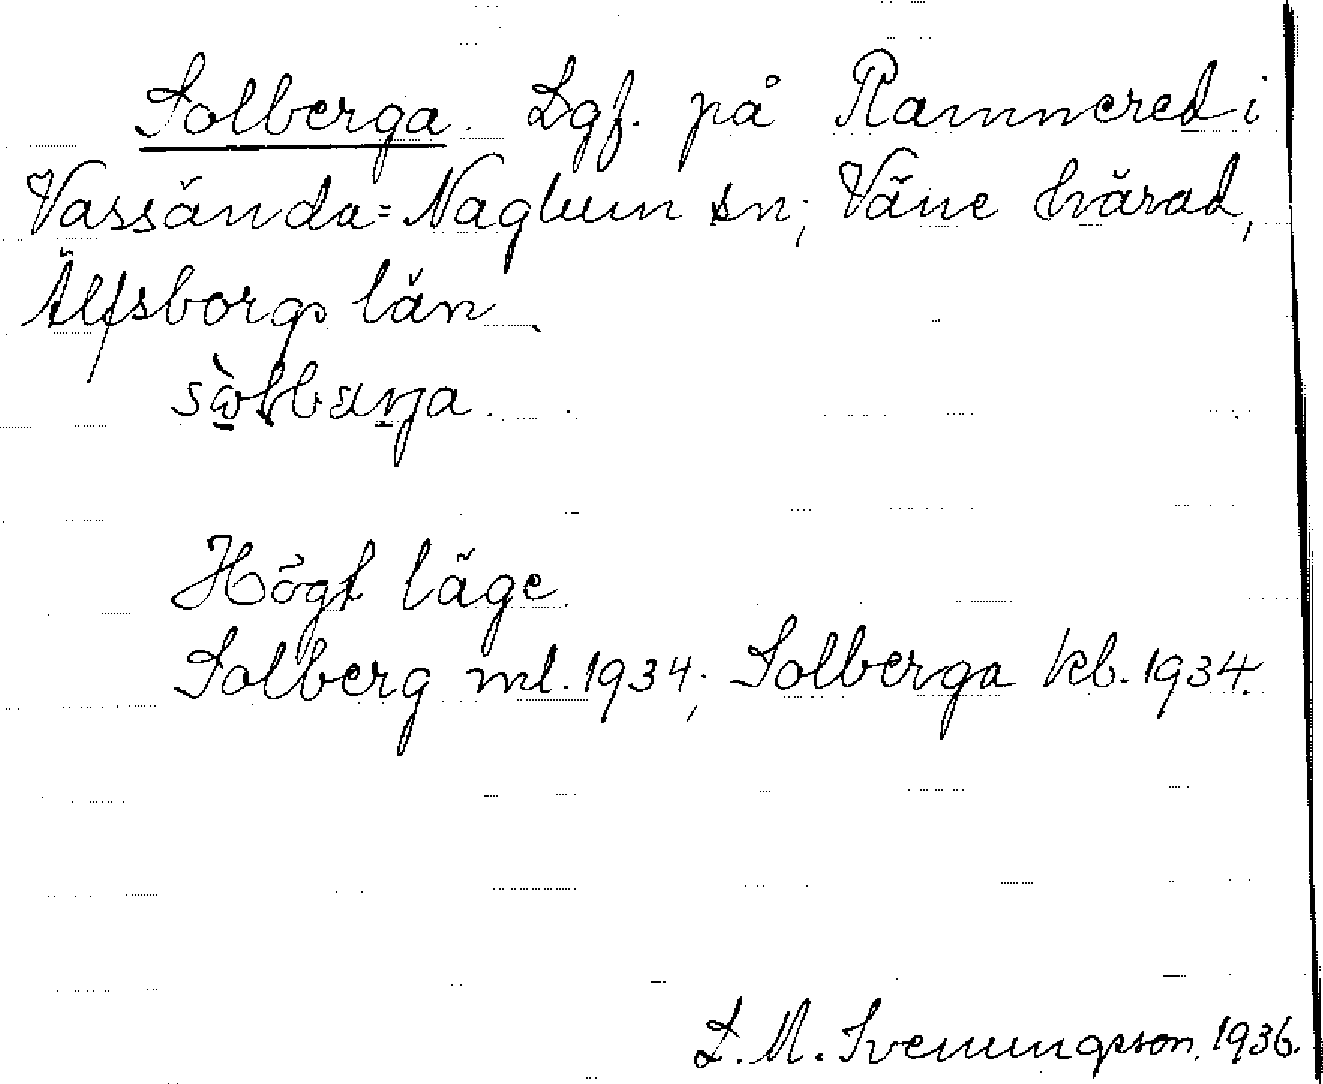 Solberga. Lgf. på Ramnered i
Vassända=Naglum sn; Väne härad,
Älfsborgs län.
Högt läge.
Solberg ml. 1934; Solberga kb. 1934.
L. M. Svenungsson. 1936.